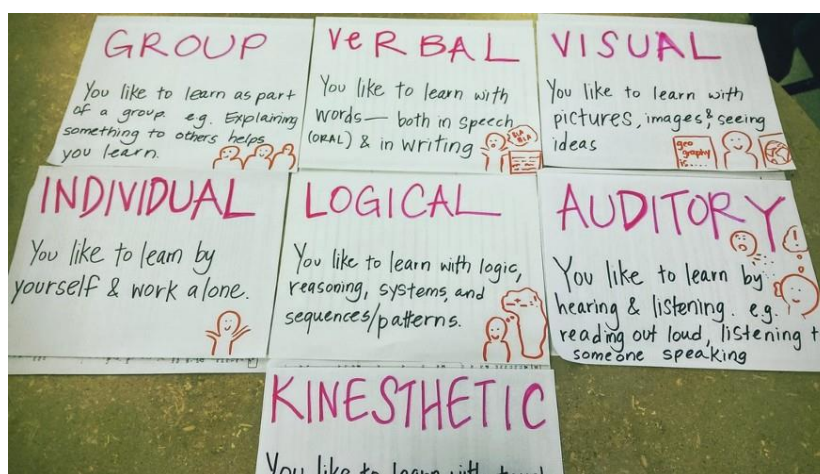 GROUP
You like to learn as part
of a group. e.g. Explaining
something to others helps
you learn.
VeRBAL
You like to learn with
words— both in speech
(ORAL) & in writing
BLA
BLA
VISUAL
You like to learn with
pictures, images, & seeing
ideas
geo
graphy
INDIVIDUAL
You like to learn by
yourself & work alone.
LOGICAL
You like to learn with logic,
reasoning, systems, and
sequences/patterns.
AUDITORY
You like to learn by
hearing & listening. e.g.
reading out loud, listening t
someone speaking
!
KINESTHETIC
You like to learn with